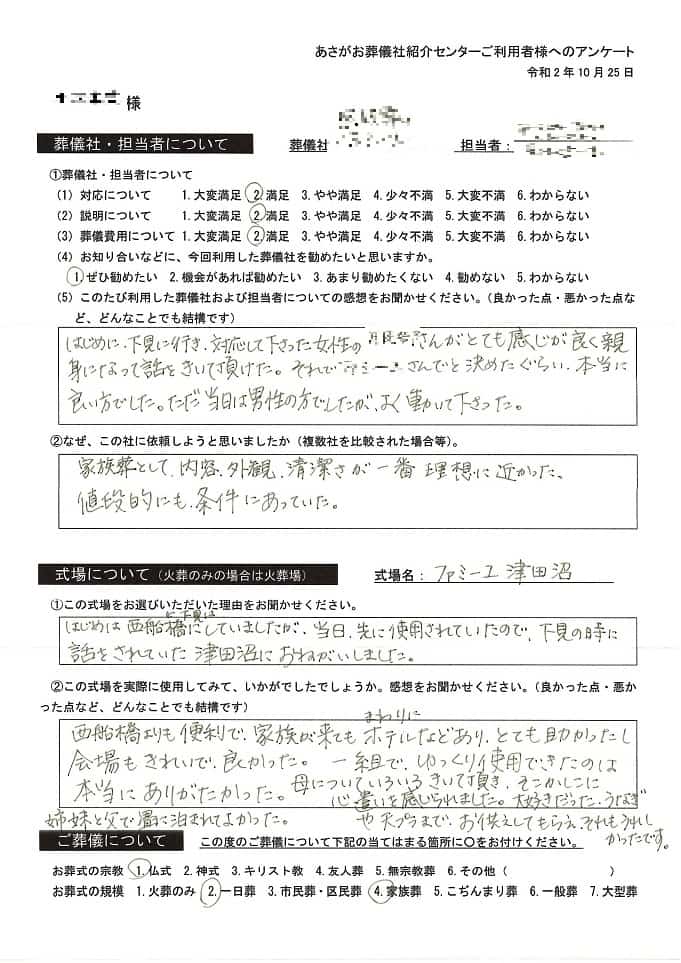 あさがお葬儀社紹介センターご利用者様へのアンケート
令和2年10月25日
様
葬儀社・担当者について 葬儀社 担当者：
①葬儀社・担当者について
(1) 対応について 1.大変満足 2.満足 3.やや満足 4.少々不満 5.大変不満 6.わからない
(2) 説明について 1.大変満足 2.満足 3.やや満足 4.少々不満 5.大変不満 6.わからない
(3) 葬儀費用について 1.大変満足 2.満足 3.やや満足 4.少々不満 5.大変不満 6.わからない
(4) お知り合いなどに、今回利用した葬儀社を勧めたいと思いますか。
1.ぜひ勧めたい 2.機会があれば勧めたい 3.あまり勧めたくない 4.勧めない 5.わからない
(5) このたび利用した葬儀社および担当者についての感想をお聞かせください。（良かった点・悪かった点な
ど、どんなことでも結構です）
はじめに、下見に行き、対応して下さった女性の さんがとても感じが良く親
身になって話をきいて頂けた。それで さんでと決めたぐらい、本当に
良い方でした。ただ当日は男性の方でしたが、よく動いて下さった。
②なぜ、この社に依頼しようと思いましたか（複数社を比較された場合等）。
家族葬として、内容、外観、清潔さが一番理想に近かった。
値段的にも、条件にあっていた。
式場について（火葬のみの場合は火葬場） 式場名：ファミーユ津田沼
①この式場をお選びいただいた理由をお聞かせください。
はじめは西船橋にしていましたが、当日、先に使用されていたので、下見の時に
話をされていた津田沼におねがいしました。
②この式場を実際に使用してみて、いかがでしたでしょうか。感想をお聞かせください。（良かった点・悪か
った点など、どんなことでも結構です）
西船橋よりも便利で、家族が来てもまわりにホテルなどあり、とても助かったし
会場もきれいで、良かった。一組で、ゆっくり使用できたのは
本当にありがたかった。母についていろいろきいて頂き、そこかしこに
心遣いを感じられました。大好きだった、うなぎ
姉妹と父で に泊まれてよかった。や天プラまで、お供えしてもらえ、それもうれし
かったです。
ご葬儀について この度のご葬儀について下記の当てはまる箇所に〇をお付けください。
お葬式の宗教 1.仏式 2.神式 3.キリスト教 4.友人葬 5.無宗教葬 6.その他（ ）
お葬式の規模 1.火葬のみ 2.一日葬 3.市民葬・区民葬 4.家族葬 5.こぢんまり葬 6.一般葬 7.大型葬